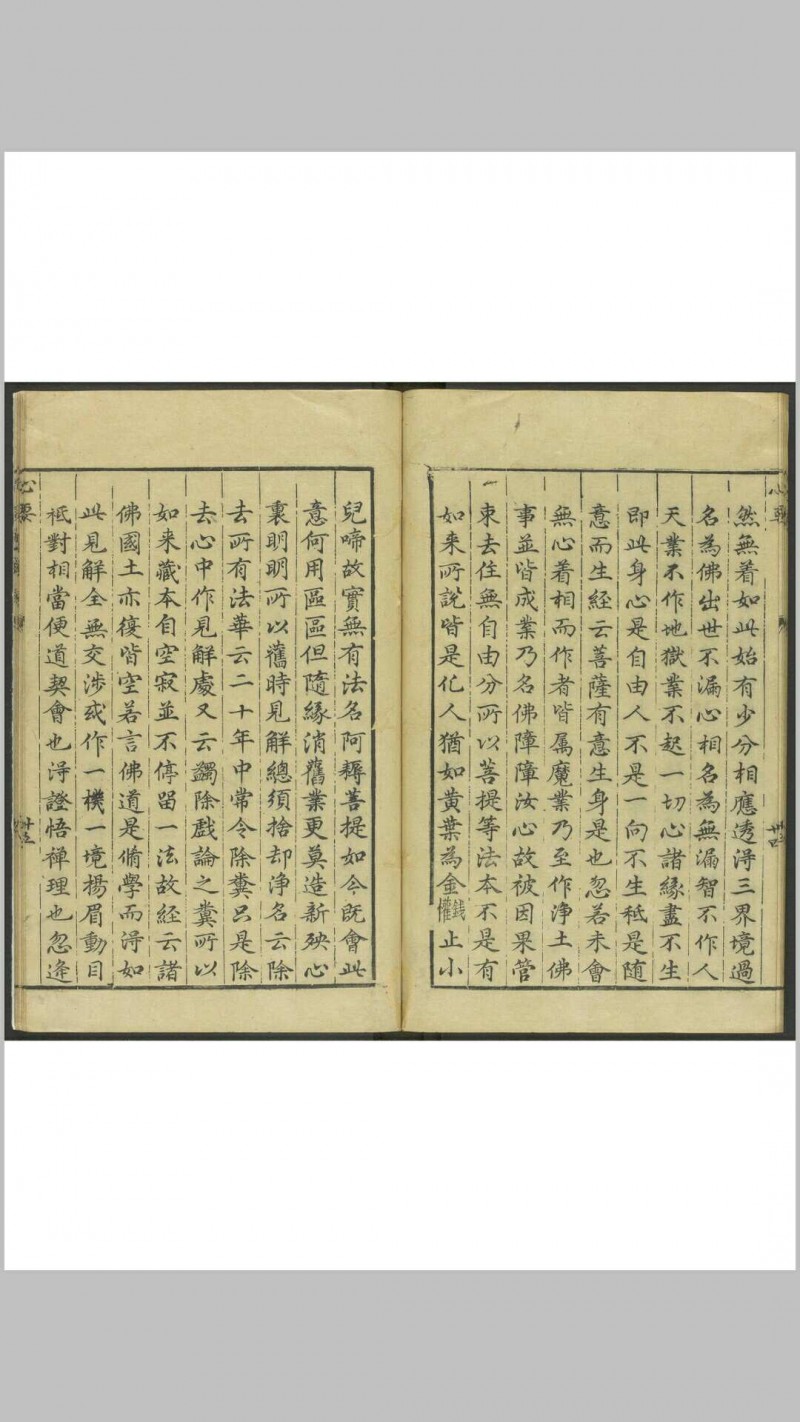 然無着如此始有少分相應透淂三界境過
名為佛出世不漏心相名為無漏智不作人
天業不作地獄業不起一切心諸緣盡不生
即此身心是自由人不是一向不生秪是随
意而生経云菩薩有意生身是也忽若未會
無心着相而作者皆属魔業乃至作淨土佛
事並皆成業乃名佛障障汝心故被因果管
束去住無自由分所以菩提等法本不是有
如来所說皆是化人猶如黄葉為金錢權止小
兒啼故實無有法名阿耨菩提如今既會此
意何用區區但隨緣消舊業更莫造新殃心
裏明明所以舊時見解總須捨却淨名云除
去所有法華云二十年中常令除糞只是除
去心中作見解處又云蠲除戲論之糞所以
如来藏本自空寂並不停留一法故経云諸
佛國土亦復皆空若言佛道是脩學而淂如
此見解全無交涉或作一機一境揚眉動目
祗對相當便道契會也淂證悟禅理也忽逢
心要